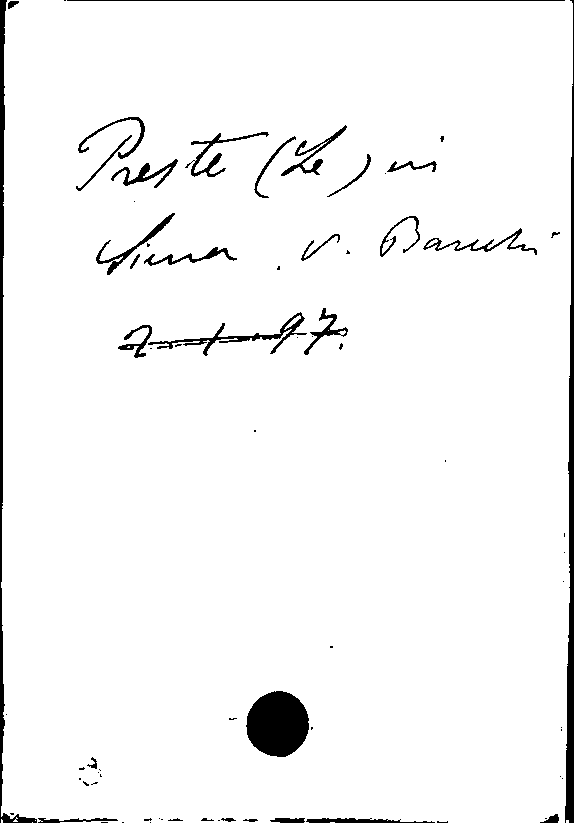 Preste (Le) in
Siena . v. Baruchi
2. 1. 97.